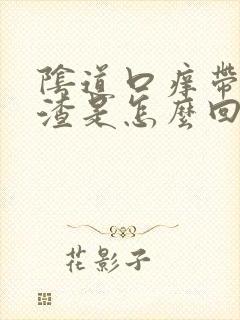 陰道口痒帶
渣是怎麼回
花影子